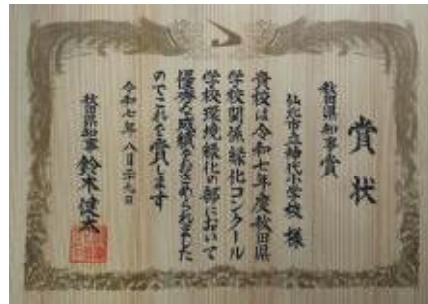 賞状
秋田県知事賞
仙北市立神代小学校 様
貴校は令和七年度秋田県
学校関係緑化コンクール
学校環境緑化の部において
優秀な成績をおさめられました
のでこれを賞します
令和七年八月二十九日
秋田県知事 鈴木健太